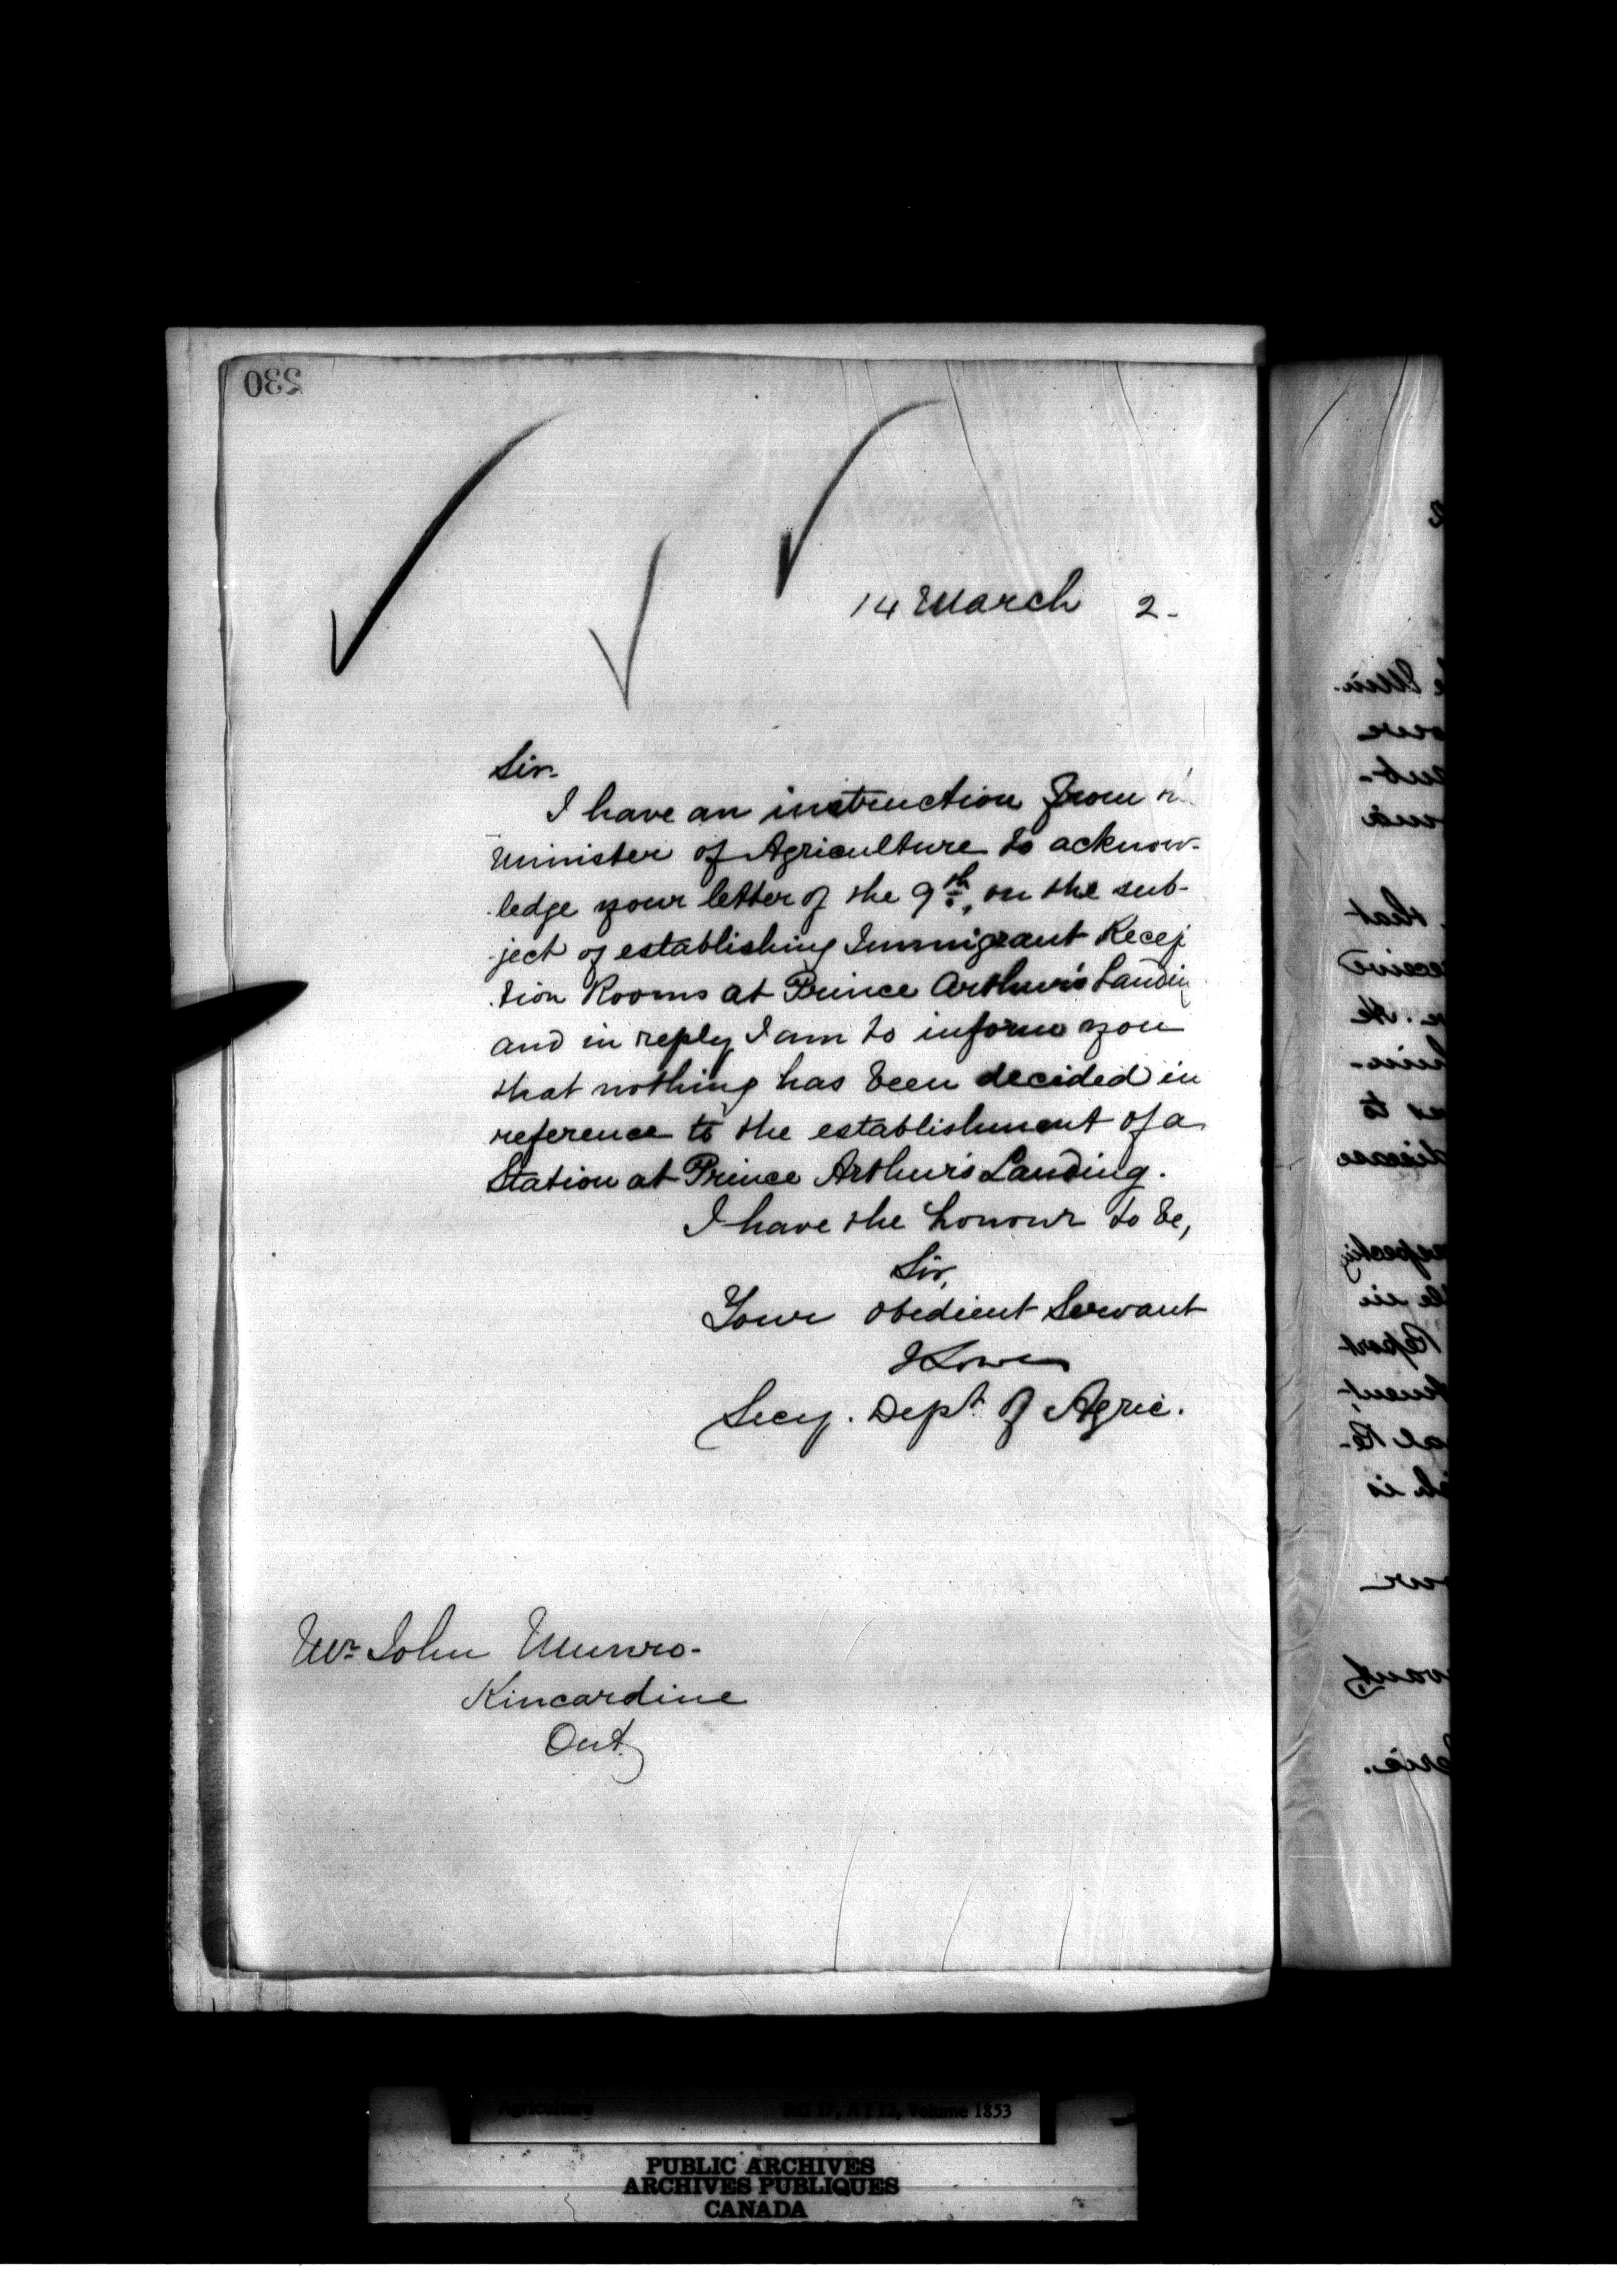 230
14 March 2-
Sir-
I have an instruction from
Minister of Agriculture to acknow-
-ledge your letter of the 9th, on the sub-
-ject of establishing Immigrant Recep
-tion Rooms at Prince Arthur's Landin
and in reply I am to inform you
that nothing has been decided in
reference to the establishment of a
Station at Prince Arthur's Landing.
I have the honour to be,
Sir,
Your obedient Servant
J Lowe
Secy. Dept of Agric.
Mr John Munro-
Kincardine
Ont.
Agriculture RG 17, A I 12, Volume 1853
PUBLIC ARCHIVES
ARCHIVES PUBLIQUES
CANADA